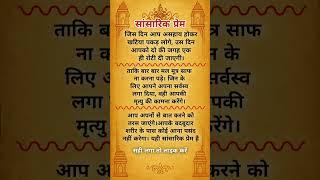 सांसारिक प्रेम
जिस दिन आप असहाय होकर
खटिया पकड़ लोगे, उस दिन
आपको दो की जगह एक
ही रोटी दी जाएगी।
ताकि बार बार मल मूत्र साफ
ना करना पड़े। जिन के
लिए आपने अपना सर्वस्व
लगा दिया, वही आपकी
मृत्यु की कामना करेंगे।
आप अपनों से बात करने को
तरस जाएंगे।आपके बदबूदार
शरीर के पास कोई आना पसंद
नहीं करेगा। यही सांसारिक प्रेम है
सही लगा तो लाइक करें